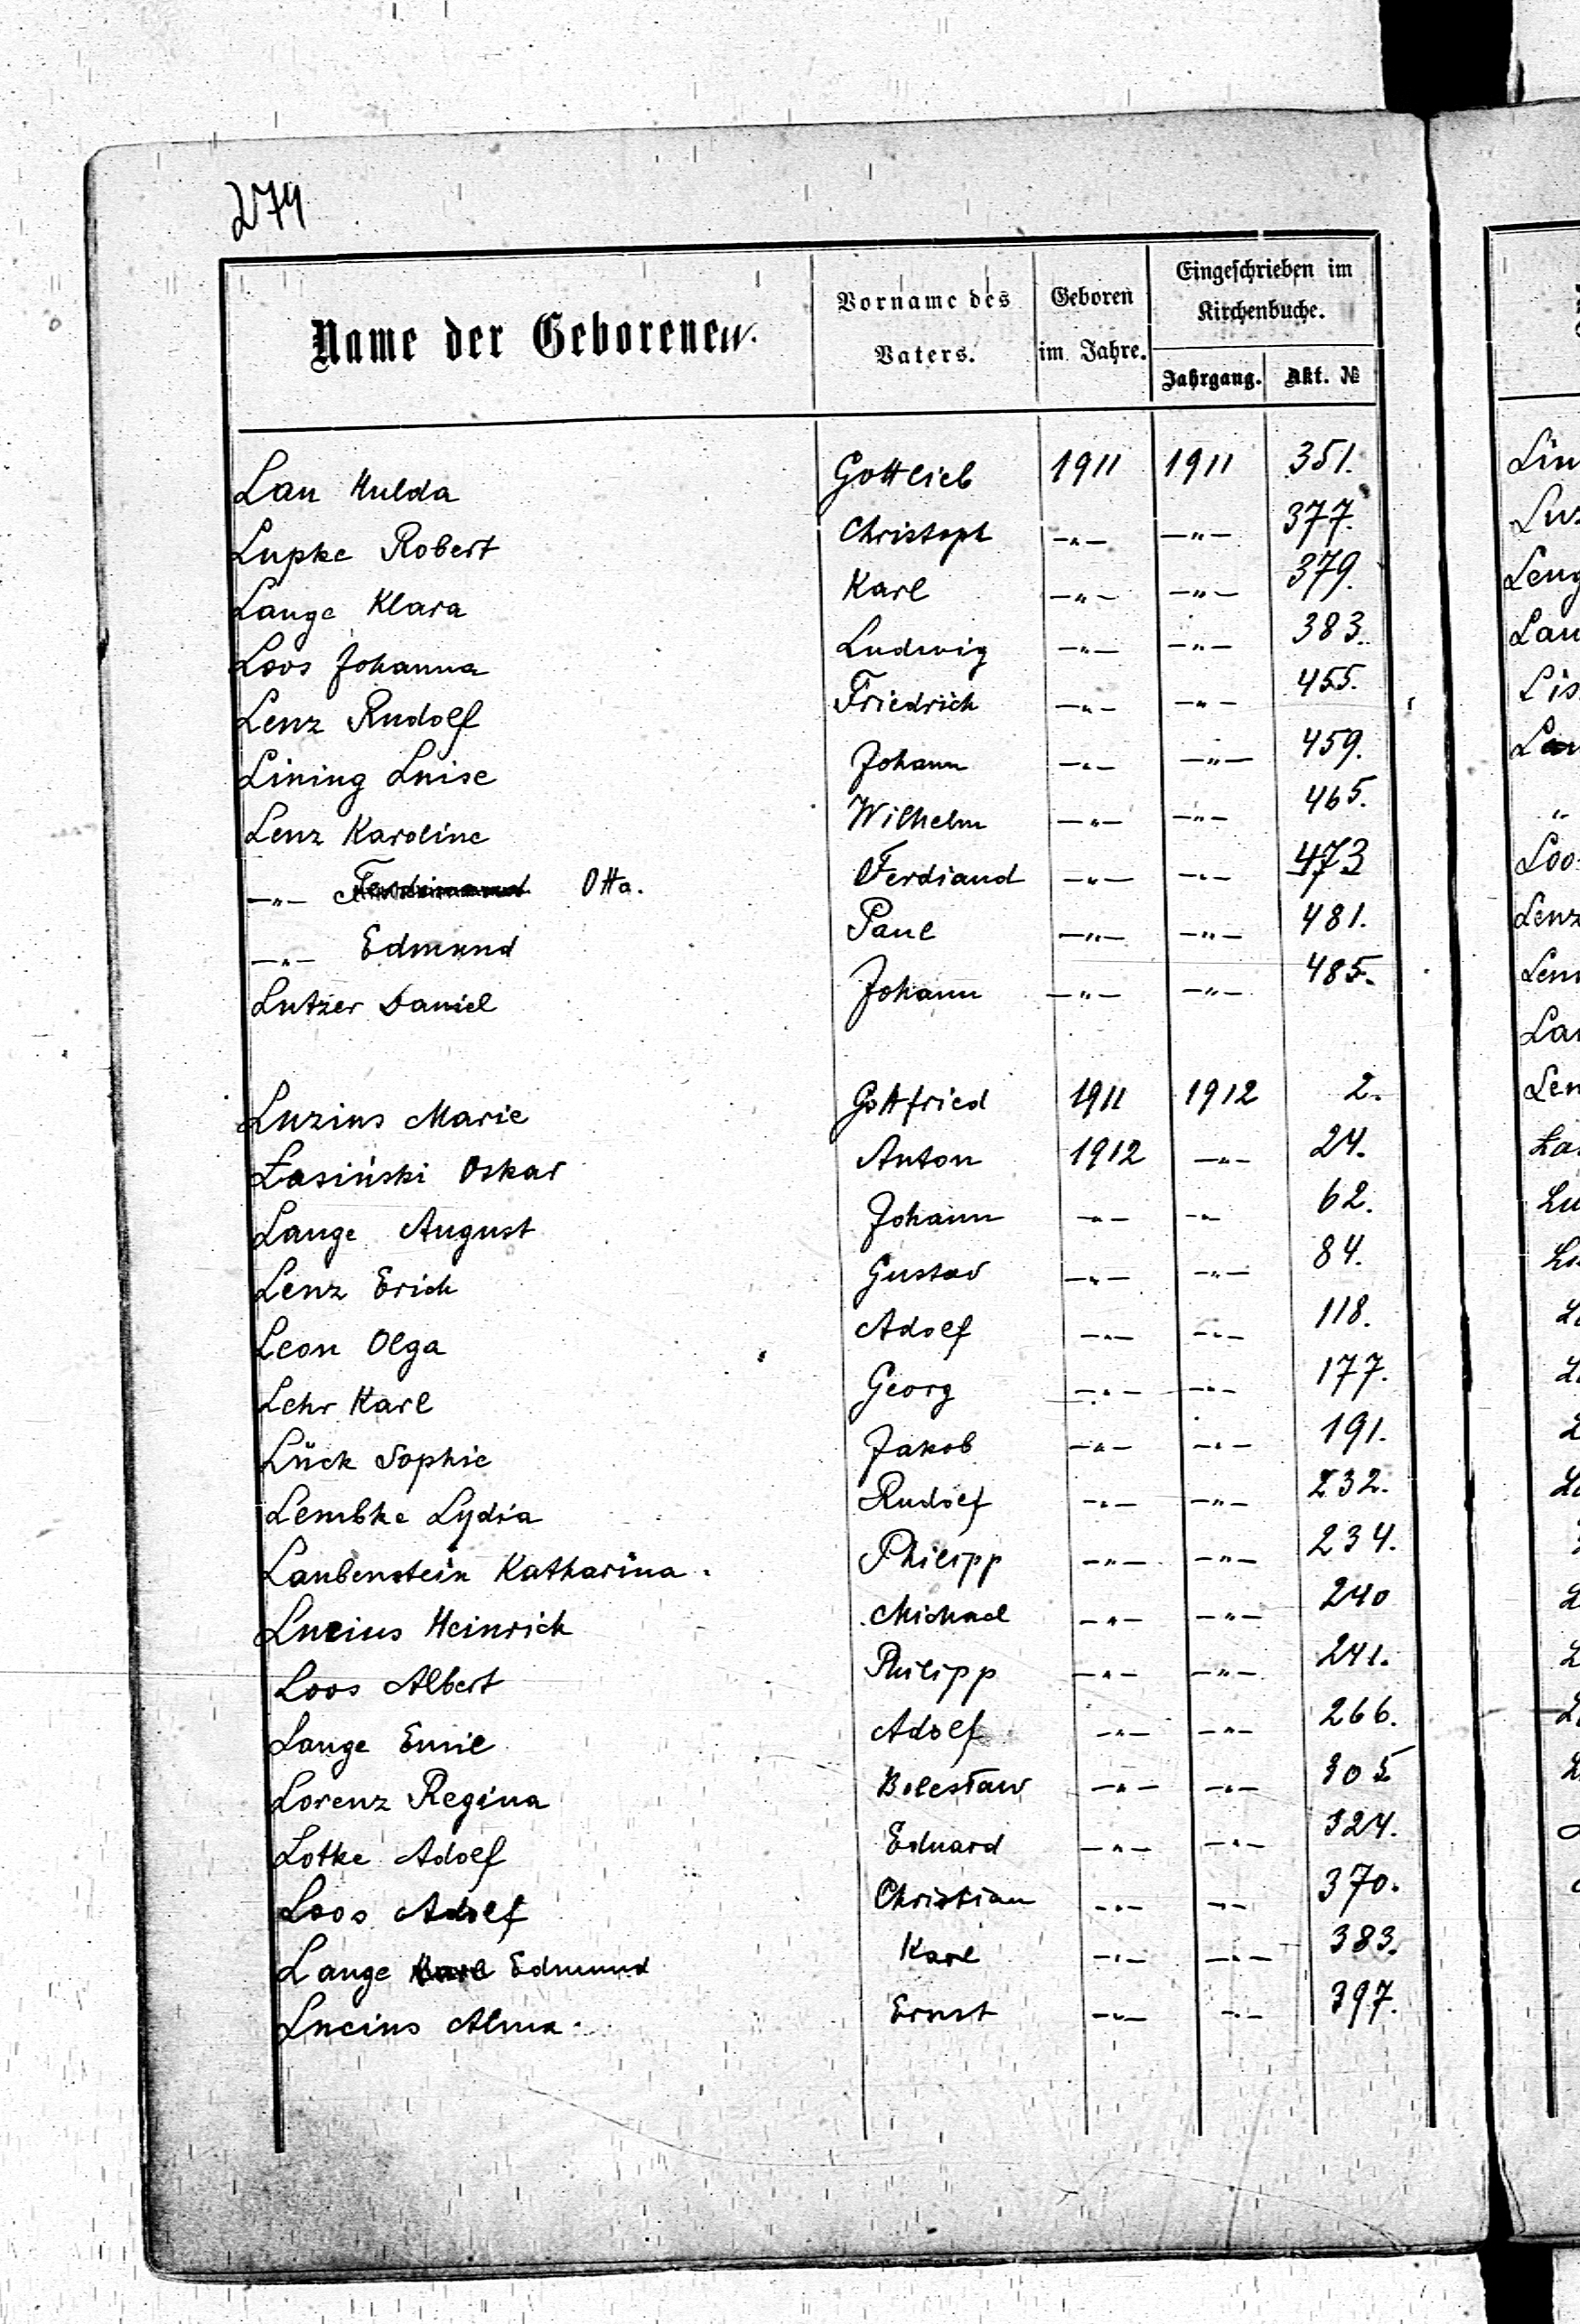 279
Name der Geborenen.
Vorname des Vaters.
Geboren im Jahre.
Eingeschrieben im Kirchenbuche.
Jahrgang. Akt. №
Lau Hulda Gottlieb 1911 1911 351.
Lupke Robert Christoph —„— —„— 377.
Lange Klara Karl —„— —„— 379.
Loos Johanna Ludwig —„— —„— 383.
Lenz Rudolf Friedrich —„— —„— 455.
Lining Luise Johann —„— —„— 459.
Lenz Karoline Wilhelm —„— —„— 465.
—„— Otto. Ferdiand —„— —„— 473
—„— Edmund Paul —„— —„— 481.
Lutzer Daniel Johann —„— —„— 485.
Luzius Marie Gottfried 1911 1912 2.
Łasiński Oskar Anton 1912 —„— 24.
Lange August Johann —„— —„— 62.
Lenz Erich Gustav —„— —„— 84.
Leon Olga Adolf —„— —„— 118.
Lehr Karl Georg —„— —„— 177.
Lück Sophie Jakob —„— —„— 191.
Lembke Lydia Rudolf —„— —„— 232.
Laubenstein Katharina. Philipp —„— —„— 234.
Lucius Heinrich Michael —„— —„— 240
Loos Albert Philipp —„— —„— 241.
Lange Emil Adolf —„— —„— 266.
Lorenz Regina Bolesław —„— —„— 305
Lotke Adolf Eduard —„— —„— 324.
Loos Adolf Christian —„— —„— 370.
Lange Karl Edmund Karl —„— —„— 383.
Lucius Alma. Ernst —„— —„— 397.